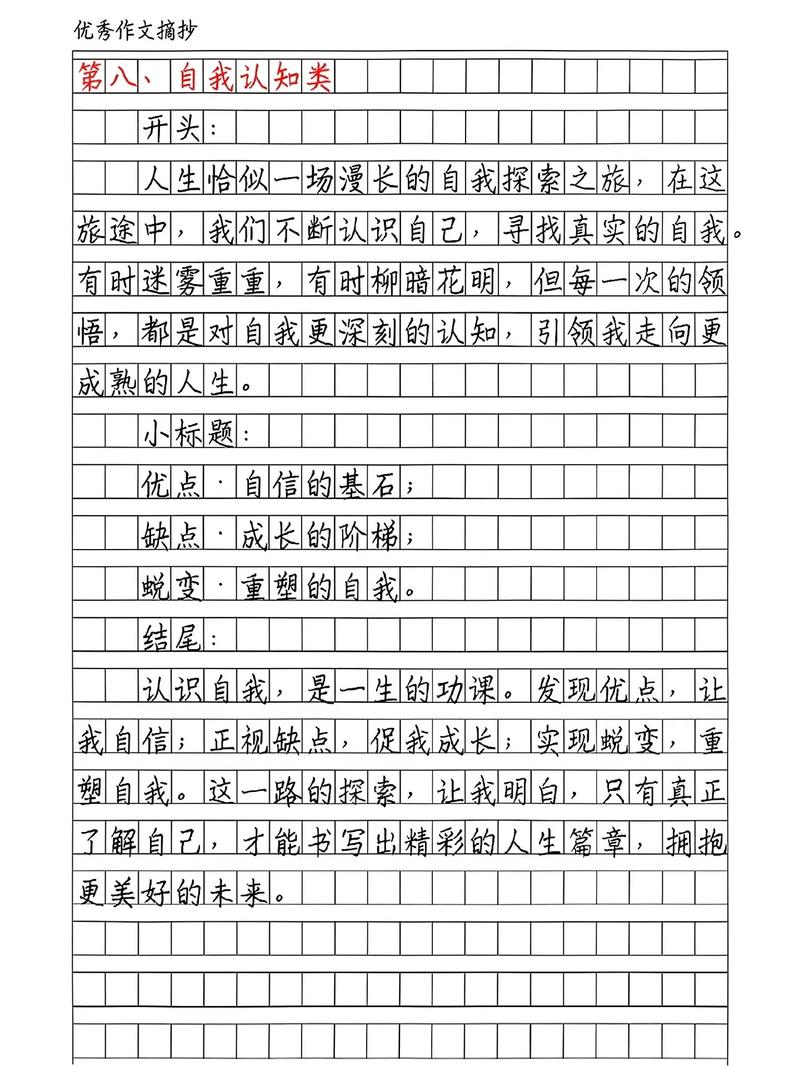 优秀作文摘抄
第八、自我认知类
开头：
人生恰似一场漫长的自我探索之旅，在这
旅途中，我们不断认识自己，寻找真实的自我。
有时迷雾重重，有时柳暗花明，但每一次的领
悟，都是对自我更深刻的认知，引领我走向更
成熟的人生。
小标题：
优点·自信的基石；
缺点·成长的阶梯；
蜕变·重塑的自我。
结尾：
认识自我，是一生的功课。发现优点，让
我自信；正视缺点，促我成长；实现蜕变，重
塑自我。这一路的探索，让我明白，只有真正
了解自己，才能书写出精彩的人生篇章，拥抱
更美好的未来。